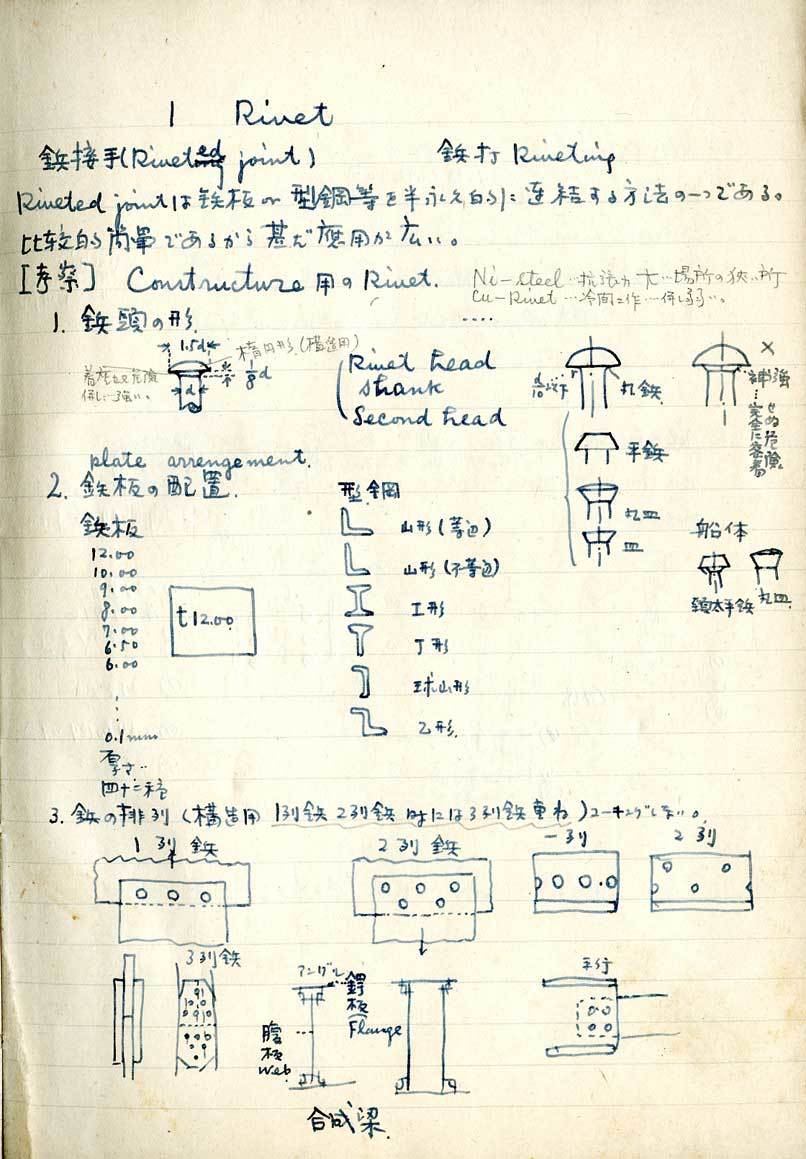 1 Rivet
鋲接手(Riveted joint) 鋲打 Riveting
Riveted jointは鉄板や型鋼等を半永久的に連結する方法の一つである。
比較的簡單であるから甚だ應用が広い。
[考察] Constructure 用の Rivet.
Ni-steel…抗張力大…場所の狭い所
Cu-Rivet…冷間工作…併し弱い。
1. 鋲頭の形.
1.5d
楕円形.(構造用)
d
Rivet head
shank
Second head
丸鋲
平鋲
丸皿
皿
×
補強
船体
頭太平鋲 丸皿
plate arrangement.
2. 鉄板の配置.
鉄板
12.00
10.00
9.00
8.00
7.00
6.50
6.00
0.1mm
厚さ
四十二種
t12.00
型鋼
山形(等辺)
山形(不等辺)
I形
丁形
球山形
乙形.
3. 鋲の排列 (構造用 1列鋲 2列鋲 時には3列鋲重ね)コーキングしない。
1列鋲
2列鋲
一列
2列
3列鋲
アングル
鍔板 Flange
腹板 web.
平行
合成梁.